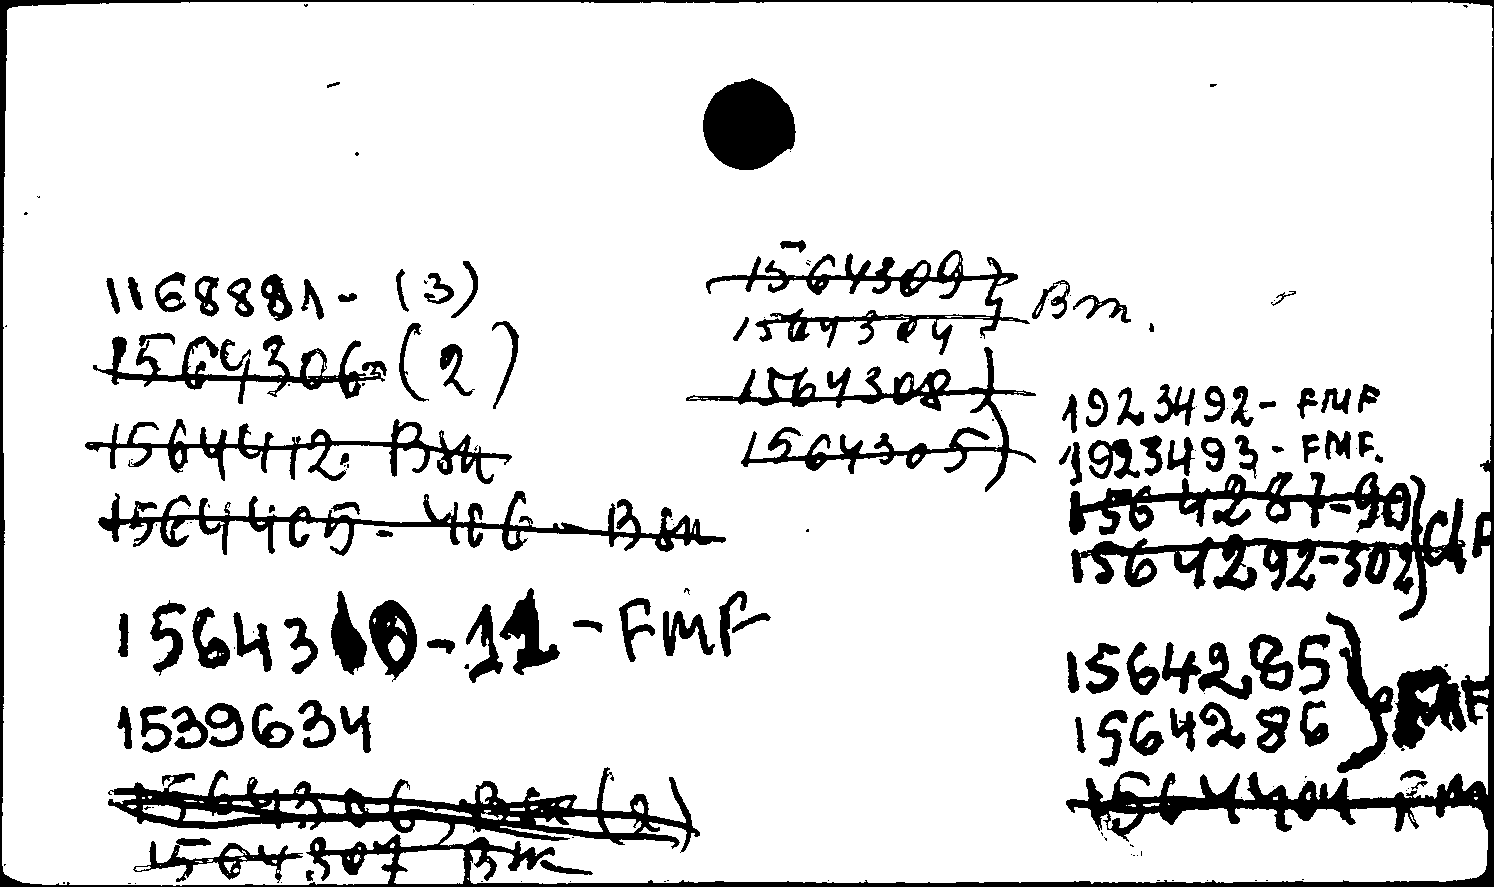 1168881 - (3)
1564306 - (2)
1564412. Вт
1564405 - 406 - Вт
1564310-11 - FMF
1539634
1564306, Вт (2)
1564307 Вт
1564309 } Вт.
1564304
1564308
1564305
1923492 - FMF
1923493 - FMF.
1564287-90
1564292-302
1564285
1564286
1564404